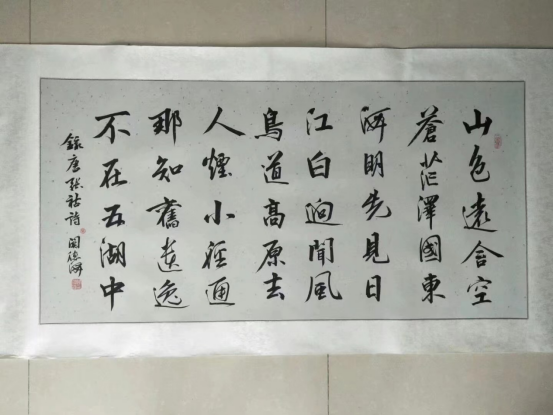 山色遠含空
蒼茫澤國東
海明先見日
江白迥聞風
鳥道高原去
人煙小徑通
那知舊遺逸
不在五湖中
錄唐張祜詩